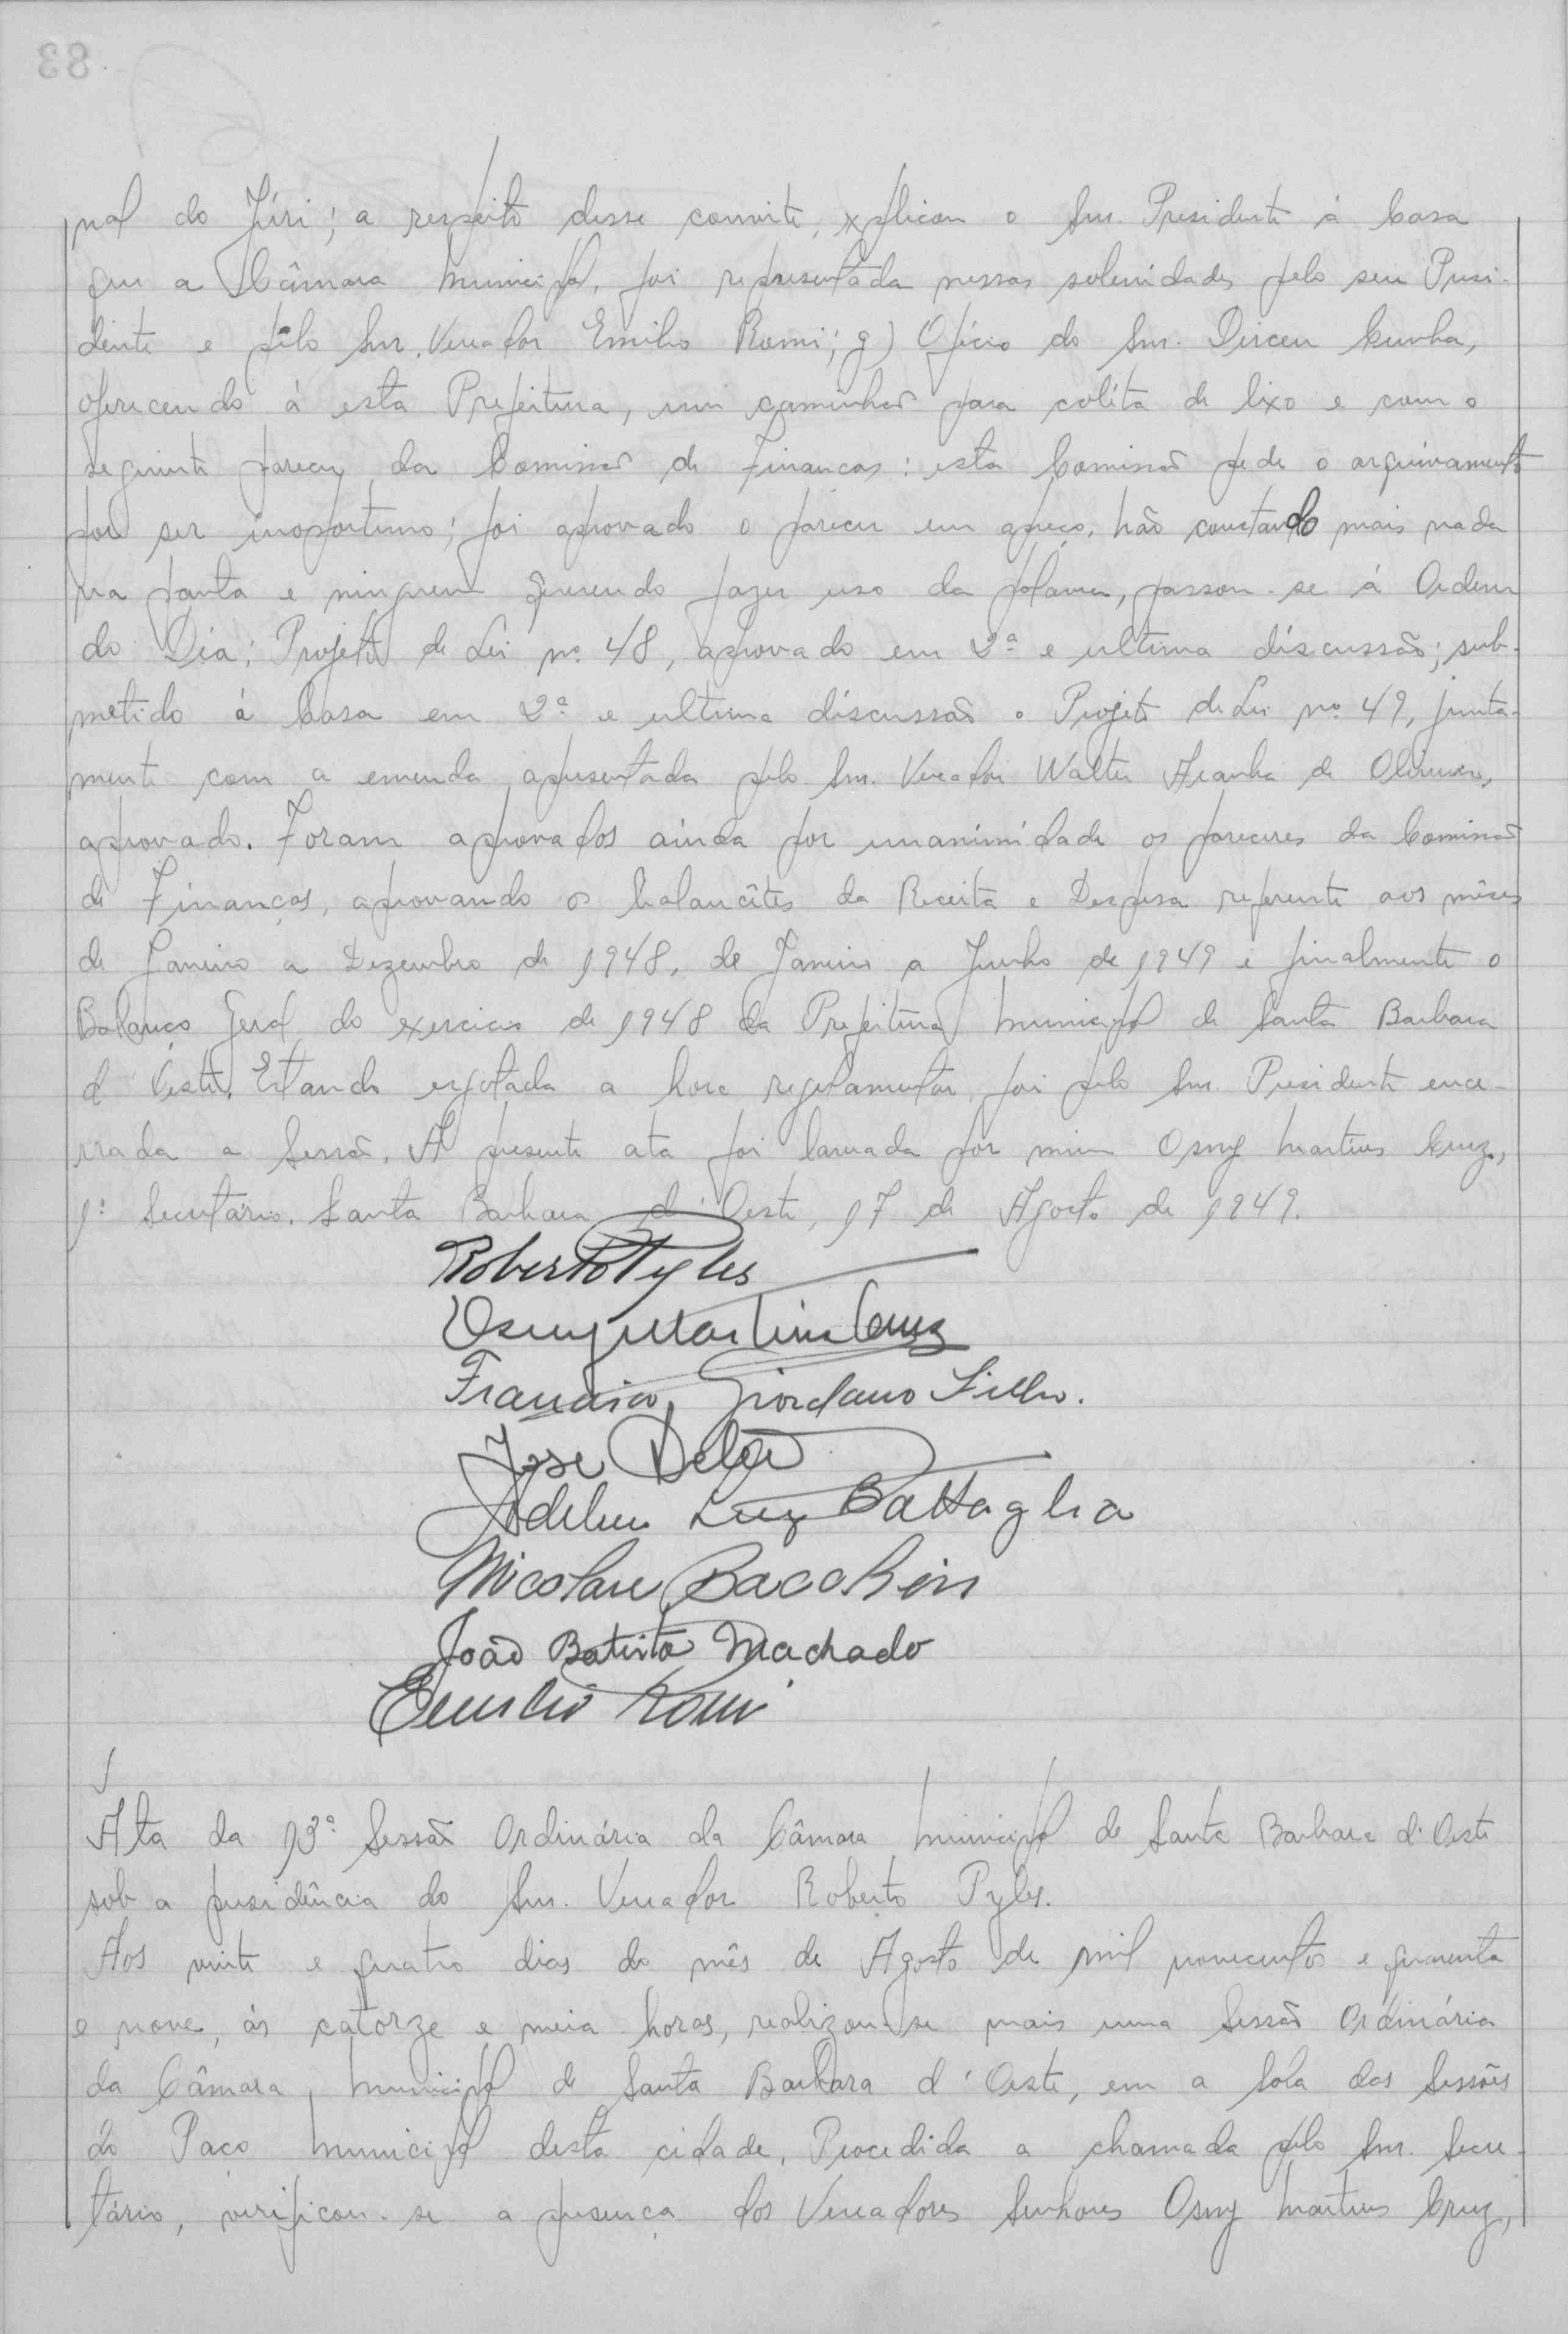 83
nal do Júri; a respeito desse convite, explicou o Snr. Presidente à Casa
que a Câmara Municipal, foi representada nessas solenidades pelo seu Presi-
dente e pelo Snr. Vereador Emilio Romi; g) Ofício do Snr. Dirceu Cunha,
oferecendo à esta Prefeitura, um caminhão para coléta de lixo e com o
seguinte parecer da Comissão de Finanças: esta Comissão pede o arquivamento
por ser inoportuno; foi aprovado o parecer em apreço. Não constando mais nada
na pauta e ninguem querendo fazer uso da palavra, passou-se á Ordem
do Dia: Projeto de Lei nº 48, aprovado em 2ª e ultima discussão; sub-
metido á Casa em 2ª e ultima discussão o Projeto de Lei nº 49, junta-
mente com a emenda apresentada pelo Snr. Vereador Walter Aranha de Oliveira,
aprovado. Foram aprovados ainda por unanimidade os pareceres da Comissão
de Finanças, aprovando os balancêtes da Receita e Despesa referente aos mêses
de Janeiro a Dezembro de 1948, de Janeiro a Junho de 1949 e finalmente o
Balanço Geral do exercicio de 1948 da Prefeitura Municipal de Santa Barbara
d'Oeste. Estando esgotada a hora regulamentar, foi pelo Snr. Presidente ence-
rrada a Sessão. A presente ata foi lavrada por mim Osny Martins Cruz,
1º Secretário. Santa Barbara d'Oeste, 17 de Agosto de 1949.
Roberto Pyles
Osny Martins Cruz
Francisco Giordano Filho.
Jose
Luiz Battaglia
Nicolau Bacchin
João Batista Machado
Emilio Romi
Ata da 13ª Sessão Ordinária da Câmara Municipal de Santa Barbara d'Oeste
sob a presidência do Snr. Vereador Roberto Pyles.
Aos vinte e quatro dias do mês de Agosto de mil novecentos e quarenta
e nove, ás catorze e meia horas, realizou-se mais uma Sessão Ordinária
da Câmara Municipal de Santa Barbara d'Oeste, em a Sala das Sessões
do Paço Municipal desta cidade. Procedida a chamada pelo Snr. Secre-
tário, verificou-se a presença dos Vereadores Senhores Osny Martins Cruz,